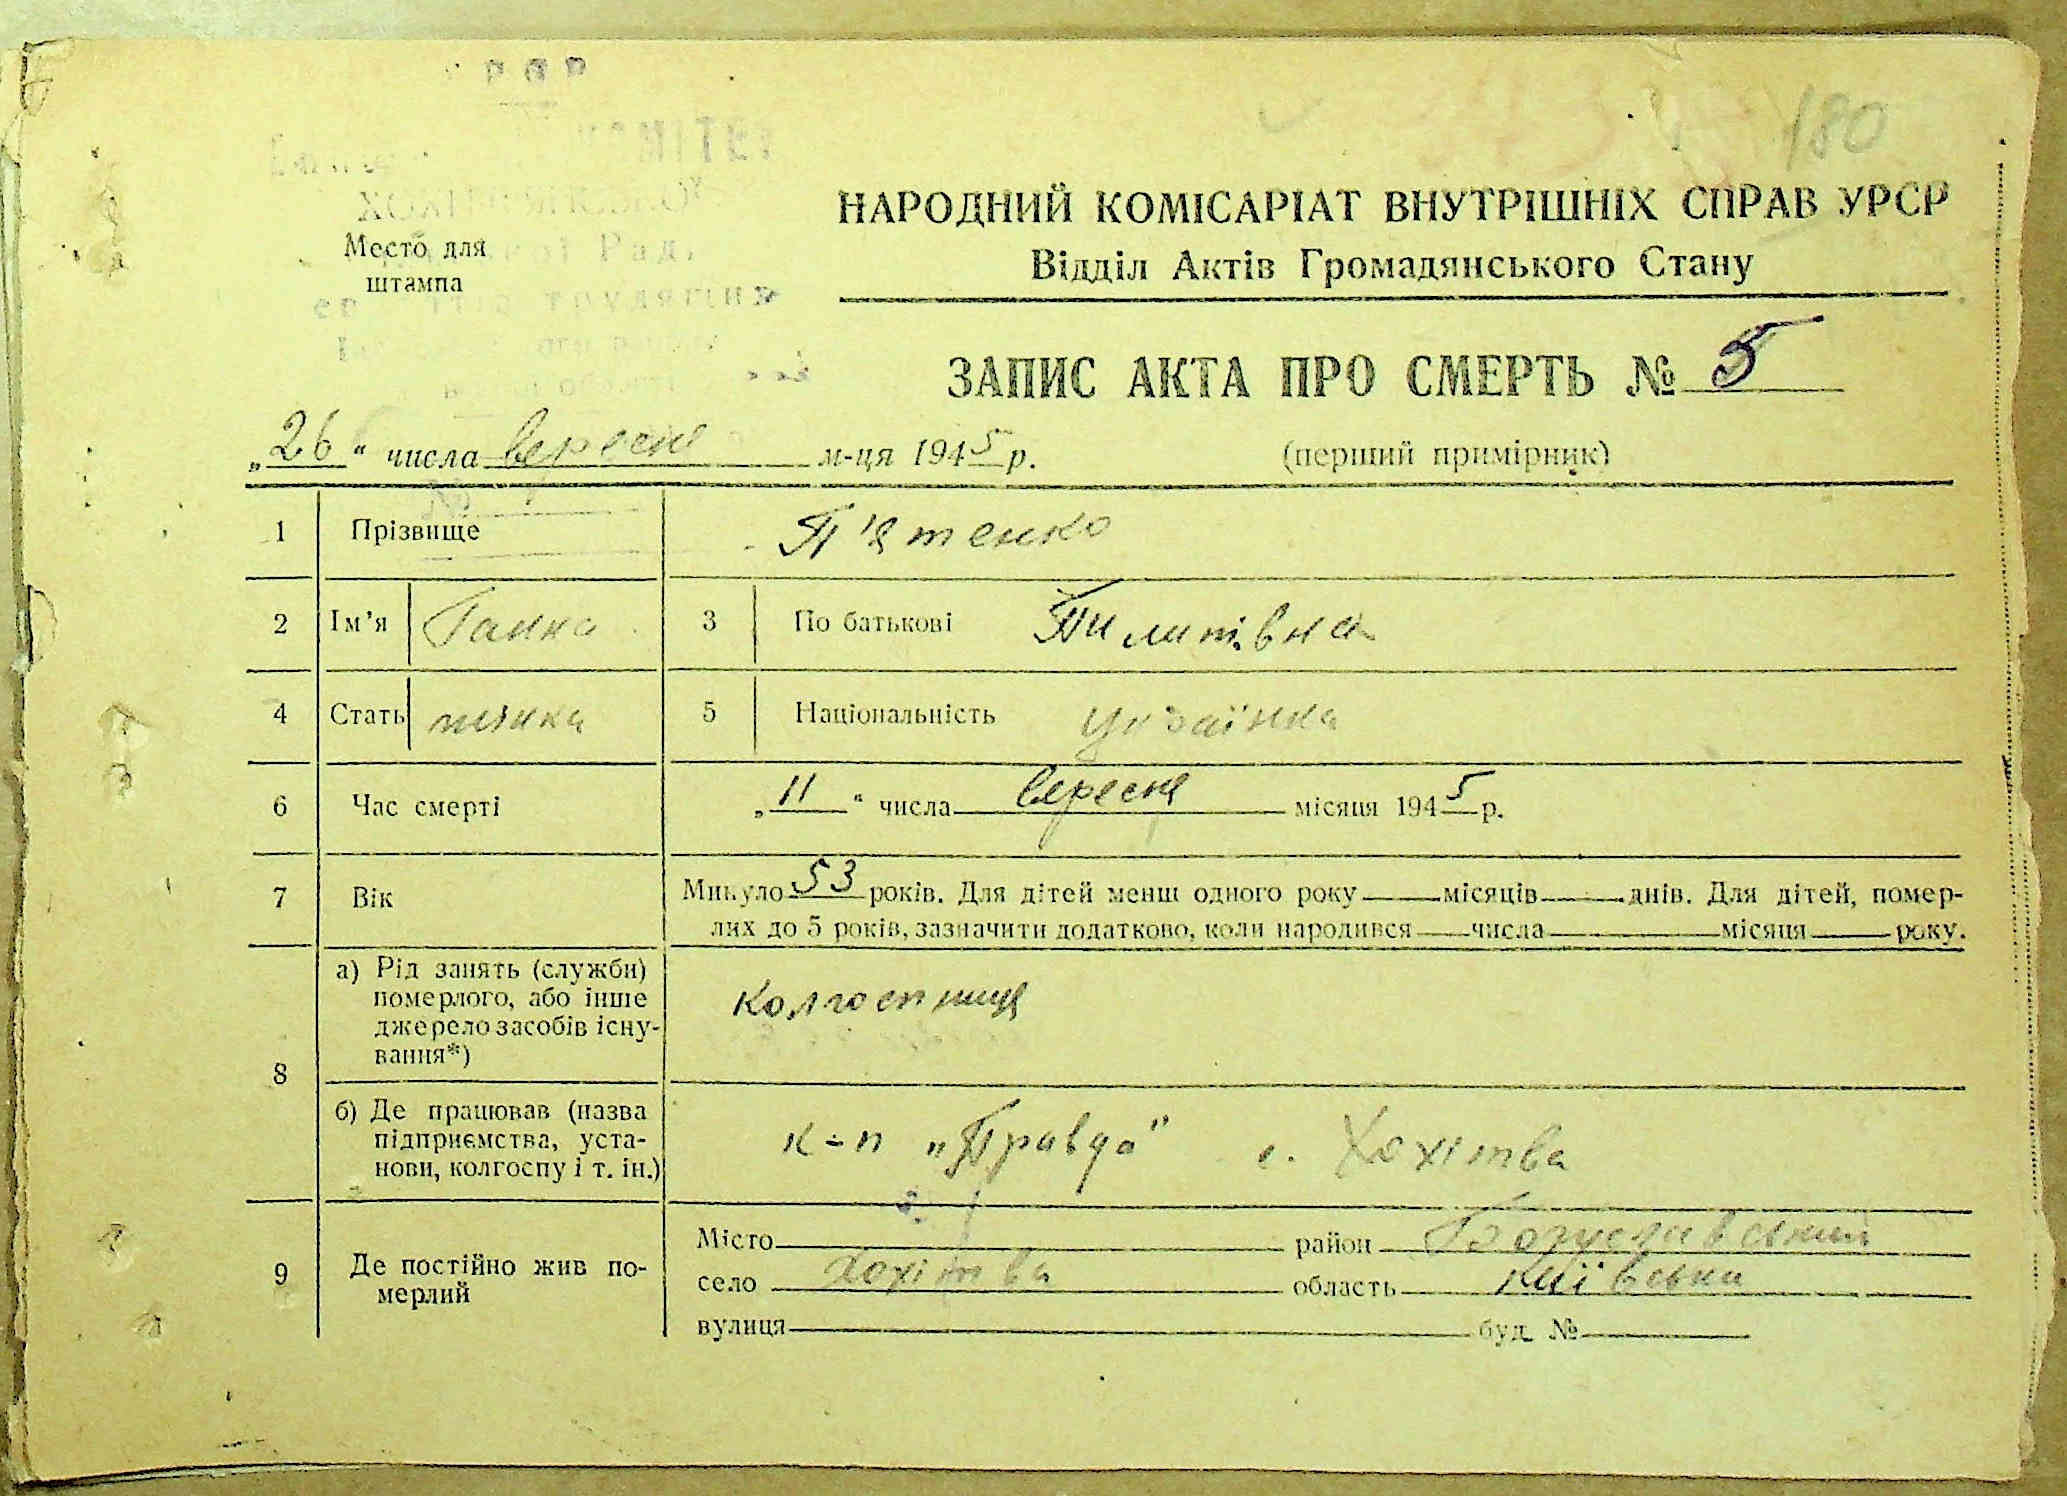 180
Место для
штампа
НАРОДНИЙ КОМІСАРІАТ ВНУТРІШНІХ СПРАВ УРСР
Відділ Актів Громадянського Стану
ЗАПИС АКТА ПРО СМЕРТЬ № 5
„26“ числа вересня м-ця 1945 р.
(перший примірник)
1 Прізвище П'ятенко
2 Ім'я Ганна 3 По батькові Пилипівна
4 Стать жінка 5 Національність українка
6 Час смерті „11“ числа вересня місяця 1945 р.
7 Вік Минуло 53 років. Для дітей менш одного року місяців днів. Для дітей, помер-
лих до 5 років, зазначити додатково, коли народився числа місяця року.
8 а) Рід занять (служби)
померлого, або інше
джерело засобів існу-
вання*)
колгоспниця
б) Де працював (назва
підприємства, уста-
нови, колгоспу і т. ін.)
к-п „Правда" с. Хохітва
9 Де постійно жив по-
мерлий
Місто район Богуславський
село Хохітва область Київська
вулиця буд. №